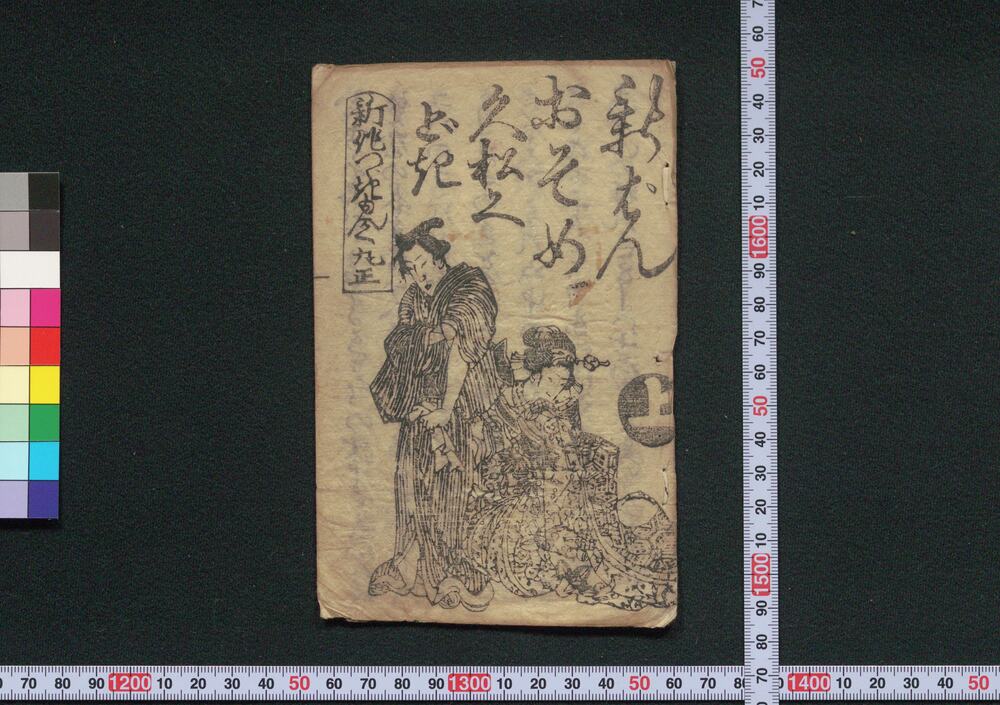 新はん
おそめ
久松く
どき
上
70 80 90 1200 10 20 30 40 50 60 70 80 90 1300 10 20 30 40 50 60 70 80 1400 10 20 30 40 50
7 60 50 40 30 20 10 1600 90 80 70 60 50 40 30 20 10 1500 90 80 70